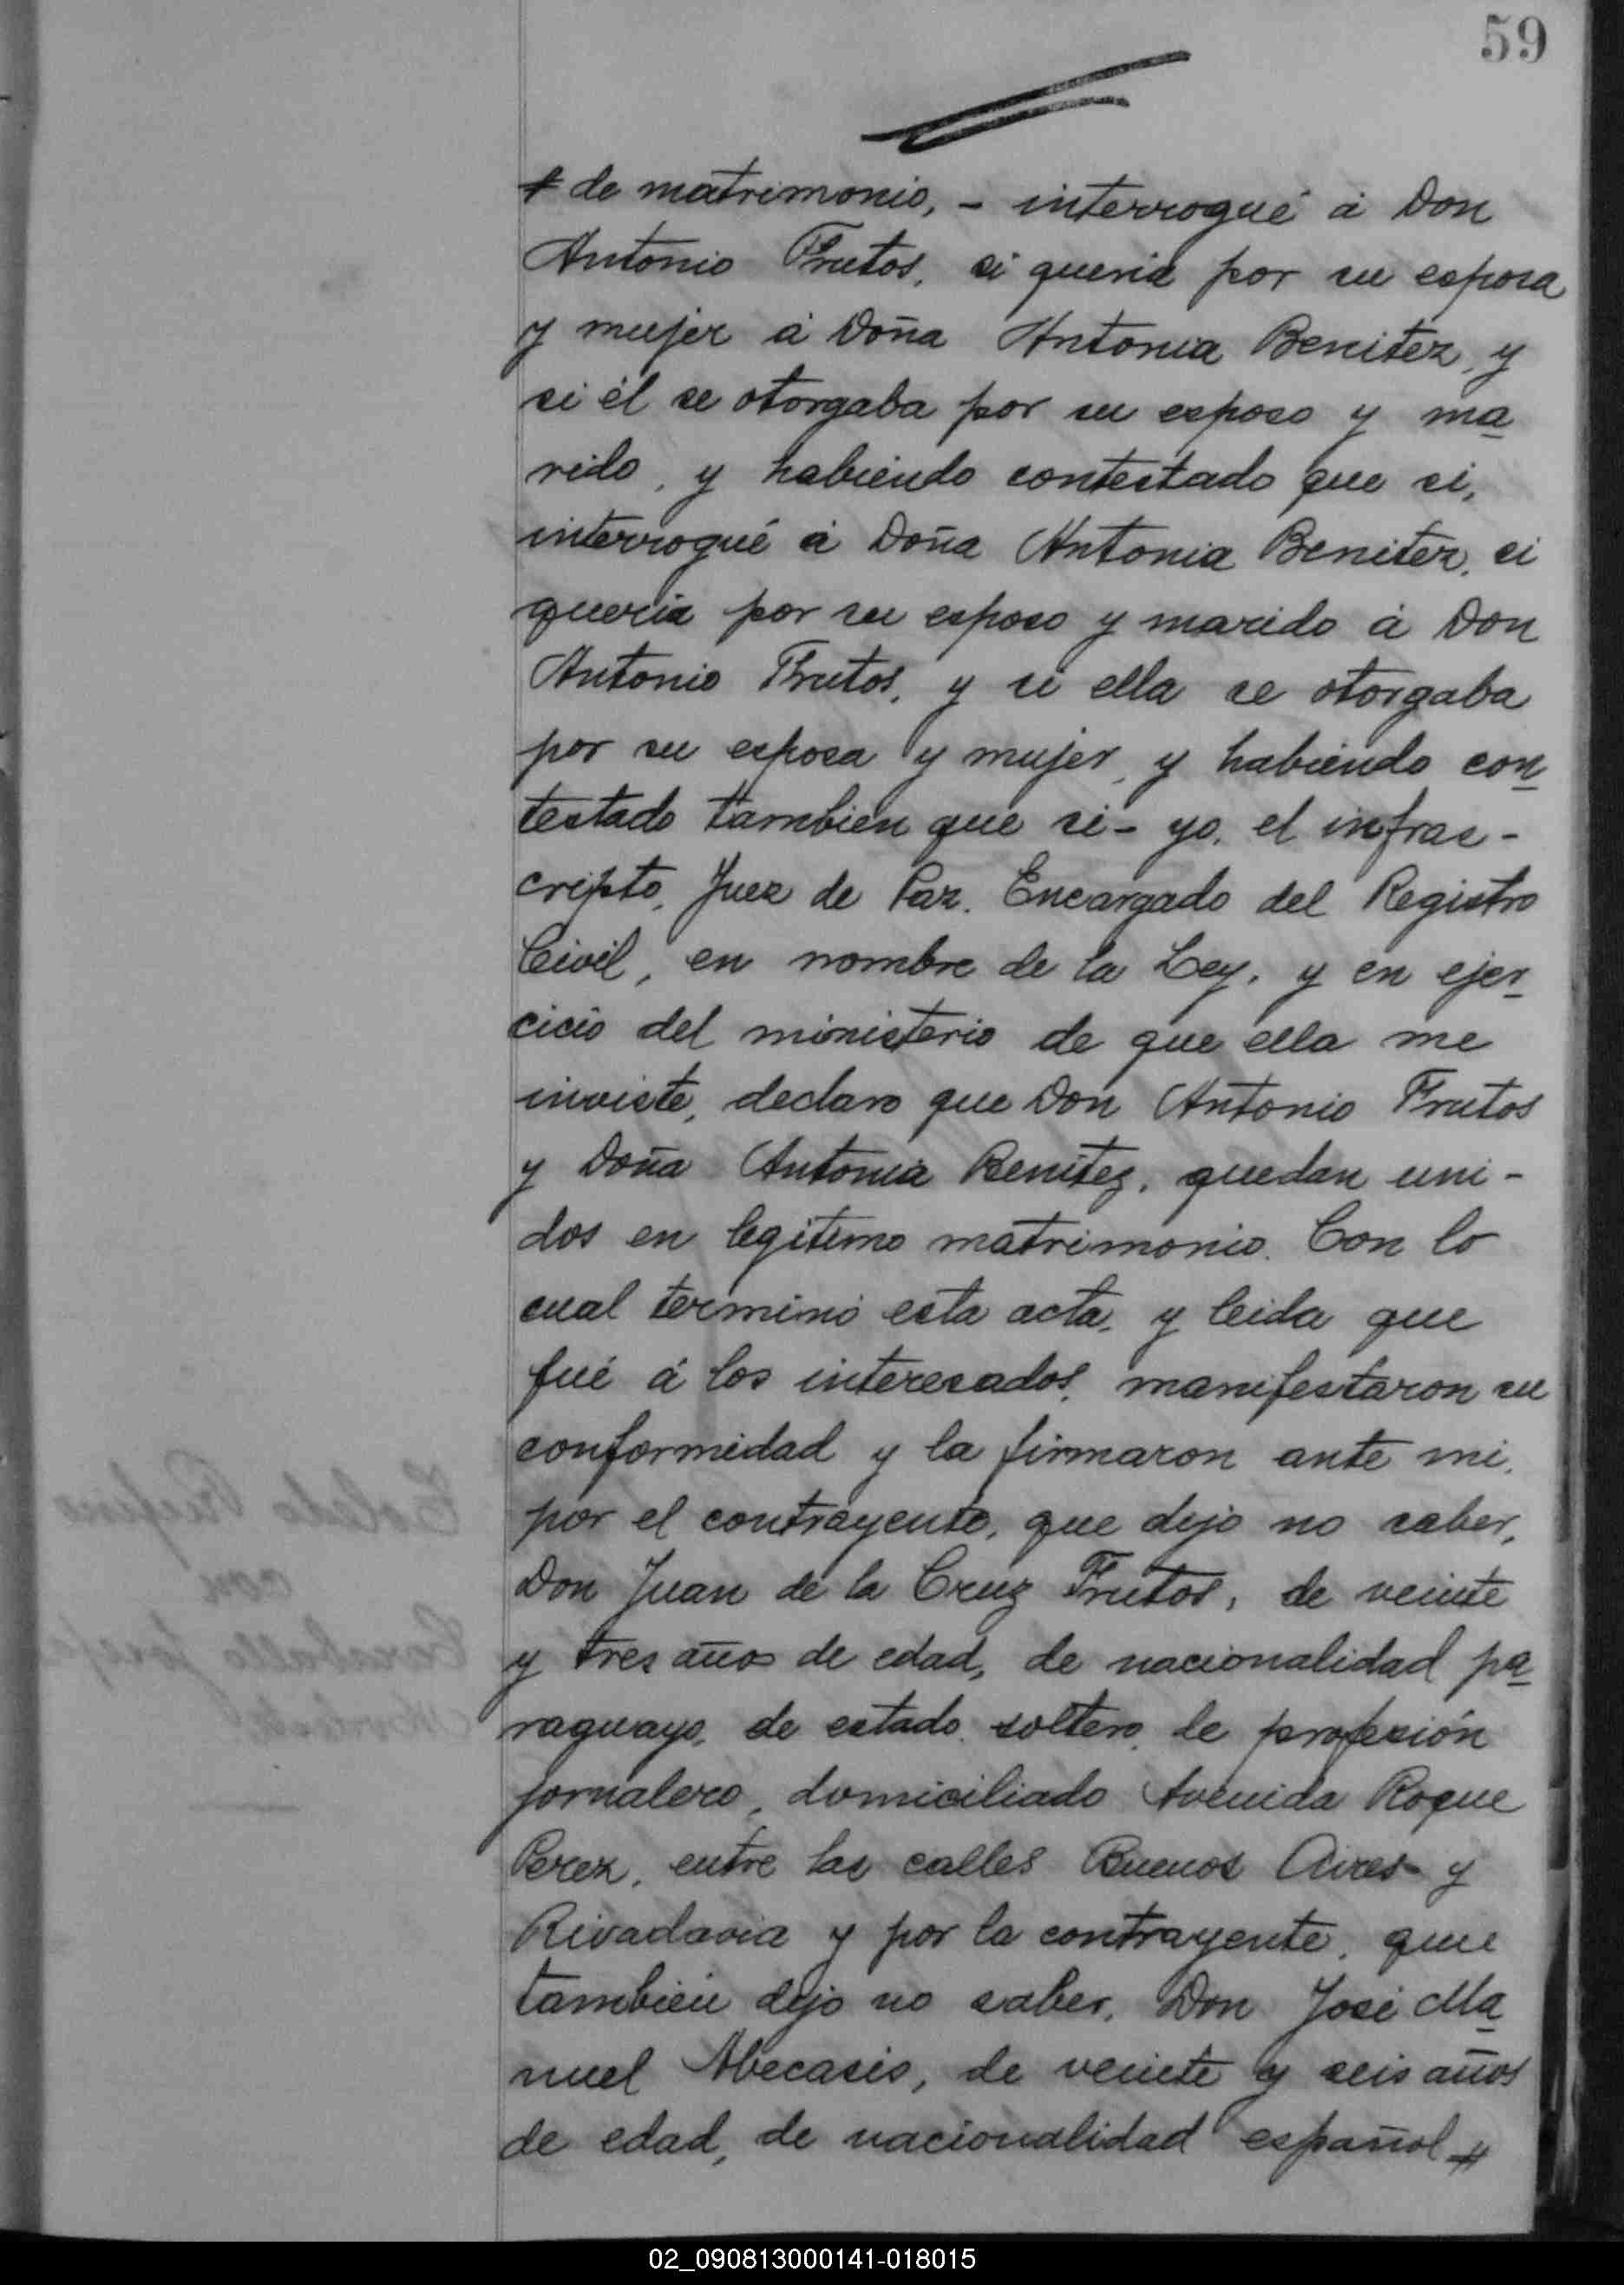 59
# de matrimonio, - interrogué á Don
Antonio Frutos, si queria por su esposa
y mujer á Doña Antonia Benitez, y
si él se otorgaba por su esposo y ma
rido, y habiendo contestado que si,
interrogué á Doña Antonia Benitez, si
queria por su esposo y marido á Don
Antonio Frutos, y si ella se otorgaba
por su esposa y mujer, y habiendo con
testado tambien que si - yo, el infras-
cripto, Juez de Paz, Encargado del Registro
Civil, en nombre de la Ley, y en ejer
cicio del ministerio de que ella me
inviste, declaro que Don Antonio Frutos
y Doña Antonia Benitez, quedan uni-
dos en legitimo matrimonio. Con lo
cual terminó esta acta, y leida que
fué á los interesados, manifestaron su
conformidad y la firmaron ante mi,
por el contrayente, que dijo no saber,
Don Juan de la Cruz Frutos, de veinte
y tres años de edad, de nacionalidad pa
raguayo, de estado soltero, de profesión
jornalero, domiciliado Avenida Roque
Perez, entre las calles Buenos Aires y
Rivadavia y por la contrayente, que
tambien dijo no saber, Don José Ma
nuel Abecasis, de veinte y seis años
de edad, de nacionalidad español #
02_090813000141-018015